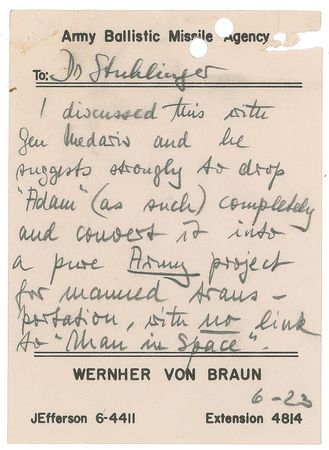 Army Ballistic Missile Agency
To: Dr Stuhlinger
I discussed this with
Gen Medaris and he
suggests strongly to drop
"Adam" (as such) completely
and convert it into
a pure Army project
for manned trans-
portation, with no link
to "Man in Space".
WERNHER VON BRAUN
6-23
JEfferson 6-4411 Extension 4814